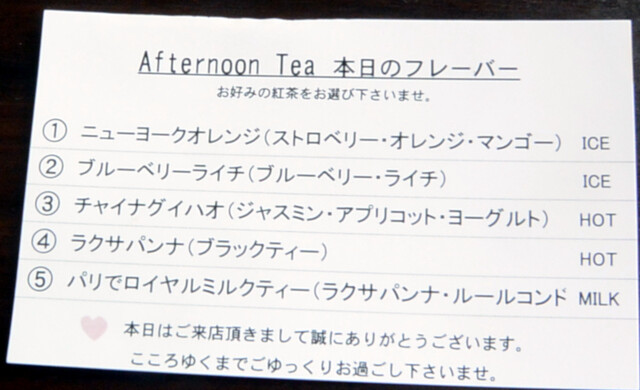 Afternoon Tea 本日のフレーバー
お好みの紅茶をお選び下さいませ。
① ニューヨークオレンジ(ストロベリー・オレンジ・マンゴー) ICE
② ブルーベリーライチ(ブルーベリー・ライチ) ICE
③ チャイナグイハオ(ジャスミン・アプリコット・ヨーグルト) HOT
④ ラクサパンナ(ブラックティー) HOT
⑤ パリでロイヤルミルクティー(ラクサパンナ・ルールコンド MILK
本日はご来店頂きまして誠にありがとうございます。
こころゆくまでごゆっくりお過ごし下さいませ。